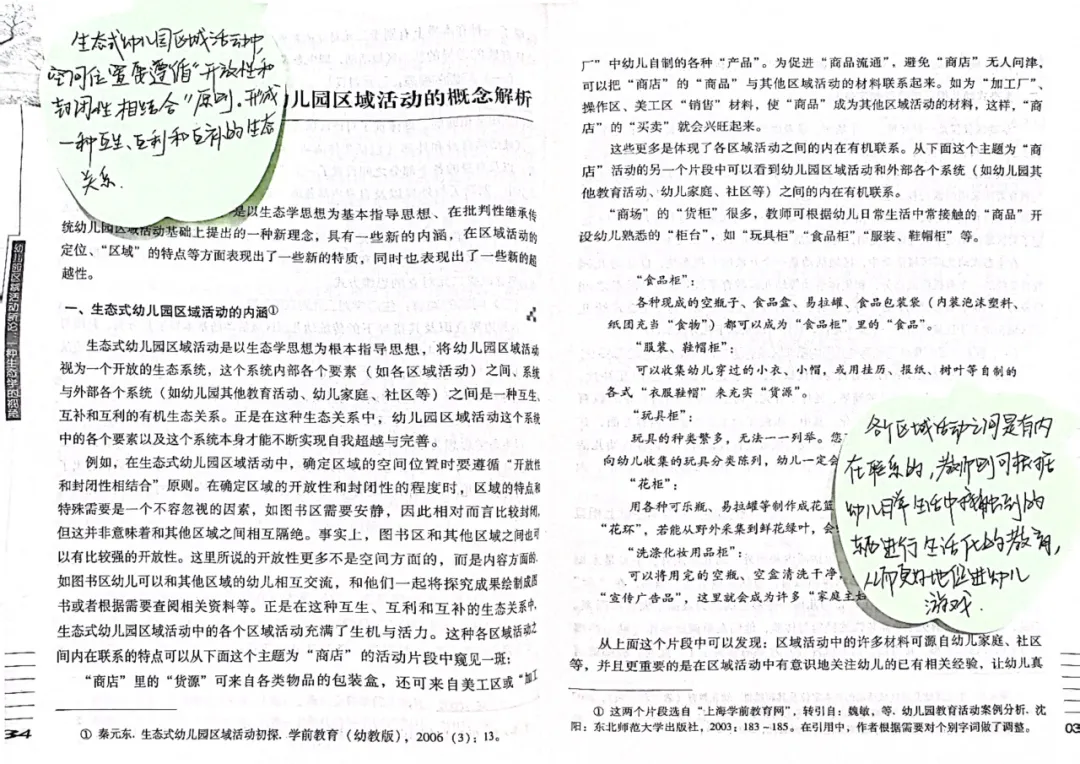 生态式幼儿园区域活动中,
空间位置要遵循“开放性和
封闭性相结合”原则,形成
一种互生、互利和互补的生态
关系.
儿园区域活动的概念解析
是以生态学思想为基本指导思想、在批判性继承传
统幼儿园区域活动基础上提出的一种新理念,具有一些新的内涵,在区域活动的
定位、“区域”的特点等方面表现出了一些新的特质,同时也表现出了一些新的超
越性。
一、生态式幼儿园区域活动的内涵①
生态式幼儿园区域活动是以生态学思想为根本指导思想,将幼儿园区域活动
视为一个开放的生态系统,这个系统内部各个要素(如各区域活动)之间、系统
与外部各个系统(如幼儿园其他教育活动、幼儿家庭、社区等)之间是一种互生、
互补和互利的有机生态关系。正是在这种生态关系中,幼儿园区域活动这个系统
中的各个要素以及这个系统本身才能不断实现自我超越与完善。
例如,在生态式幼儿园区域活动中,确定区域的空间位置时要遵循“开放性
和封闭性相结合”原则。在确定区域的开放性和封闭性的程度时,区域的特点和
特殊需要是一个不容忽视的因素,如图书区需要安静,因此相对而言比较封闭,
但这并非意味着和其他区域之间相互隔绝。事实上,图书区和其他区域之间也可
以有比较强的开放性。这里所说的开放性更多不是空间方面的,而是内容方面的.
如图书区幼儿可以和其他区域的幼儿相互交流,和他们一起将探究成果绘制成图
书或者根据需要查阅相关资料等。正是在这种互生、互利和互补的生态关系中,
生态式幼儿园区域活动中的各个区域活动充满了生机与活力。这种各区域活动之
间内在联系的特点可以从下面这个主题为“商店”的活动片段中窥见一斑:
“商店”里的“货源”可来自各类物品的包装盒,还可来自美工区或“加工
① 秦元东. 生态式幼儿园区域活动初探. 学前教育(幼教版), 2006 (3): 13。
34
幼儿园区域活动新论:一种生态学的视角
厂”中幼儿自制的各种“产品”。为促进“商品流通”,避免“商店”无人问津,
可以把“商店”的“商品”与其他区域活动的材料联系起来。如为“加工厂”、
操作区、美工区“销售”材料,使“商品”成为其他区域活动的材料,这样,“商
店”的“买卖”就会兴旺起来。
这些更多是体现了各区域活动之间的内在有机联系。从下面这个主题为“商
店”活动的另一个片段中可以看到幼儿园区域活动和外部各个系统(如幼儿园其
他教育活动、幼儿家庭、社区等)之间的内在有机联系。
“商场”的“货柜”很多,教师可根据幼儿日常生活中常接触的“商品”开
设幼儿熟悉的“柜台”,如“玩具柜”“食品柜”“服装、鞋帽柜”等。
“食品柜”:
各种现成的空瓶子、食品盒、易拉罐、食品包装袋(内装泡沫塑料、
纸团充当“食物”)都可以成为“食品柜”里的“食品”。
“服装、鞋帽柜”:
可以收集幼儿穿过的小衣、小帽,或用挂历、报纸、树叶等自制的
各式“衣服鞋帽”来充实“货源”。
“玩具柜”:
玩具的种类繁多,无法一一列举。您
向幼儿收集的玩具分类陈列,幼儿一定会
“花柜”:
用各种可乐瓶、易拉罐等制作成花篮
“花环”,若能从野外采集到鲜花绿叶,会
“洗涤化妆用品柜”:
可以将用完的空瓶、空盒清洗干净,
“宣传广告品”,这里就会成为许多“家庭主妇
各个区域活动之间是有内
在联系的,教师则可根据
幼儿日常生活中接触到的
进行生活化的教育,
从而更好地促进幼儿
游戏.
从上面这个片段中可以发现:区域活动中的许多材料可源自幼儿家庭、社区
等,并且更重要的是在区域活动中有意识地关注幼儿的已有相关经验,让幼儿真
① 这两个片段选自“上海学前教育网”,转引自:魏敏,等. 幼儿园教育活动案例分析. 沈
阳:东北师范大学出版社,2003: 183-185。在引用中,作者根据需要对个别字词做了调整。
03